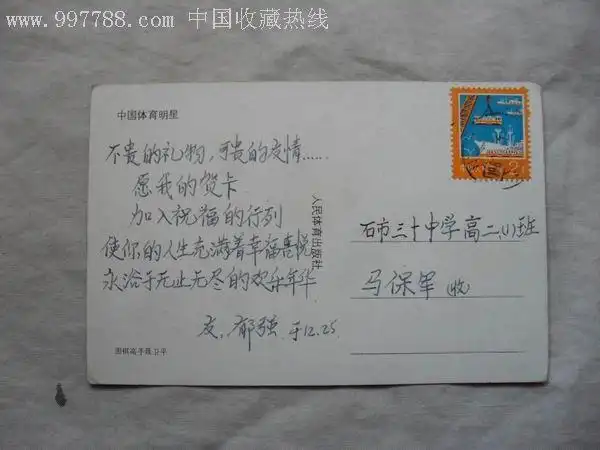 www.997788.com 中国收藏热线
中国体育明星
不贵的礼物,可贵的友情......
愿我的贺卡
加入祝福的行列
使你的人生充满着幸福喜悦
永浴于无止无尽的欢乐年华
友:郁强 于12.25
围棋高手聂卫平
人民体育出版社
石市三十中学高二(1)班
马保军(收)